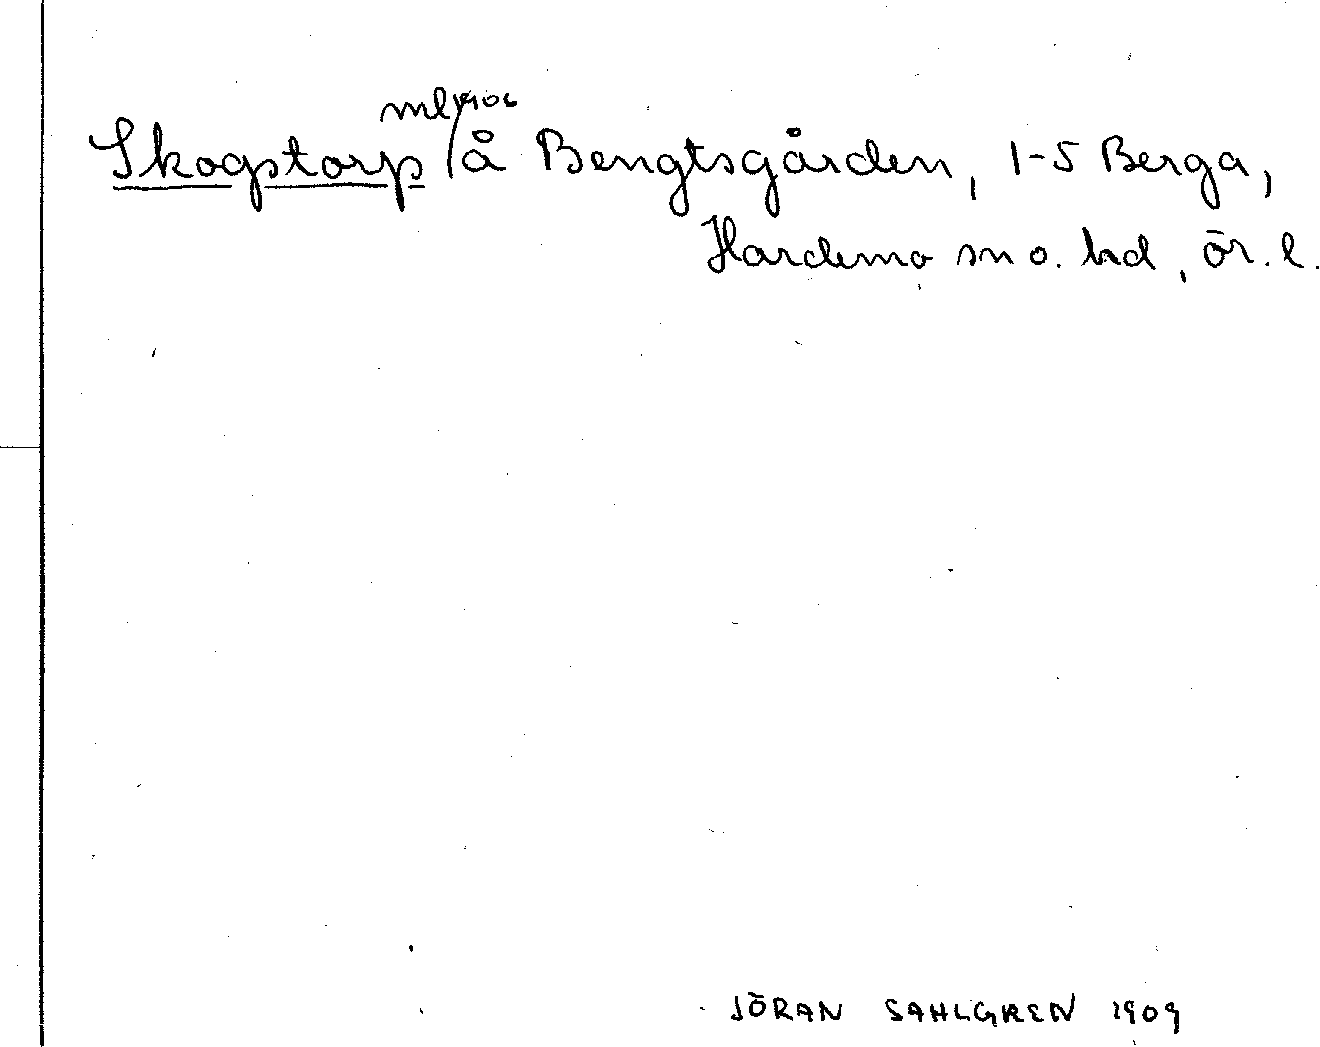 ml 1906
Skogstorp å Bengtsgården, 1-5 Berga,
Hardemo sn o. hd, ör. l.
JÖRAN SAHLGREN 1909